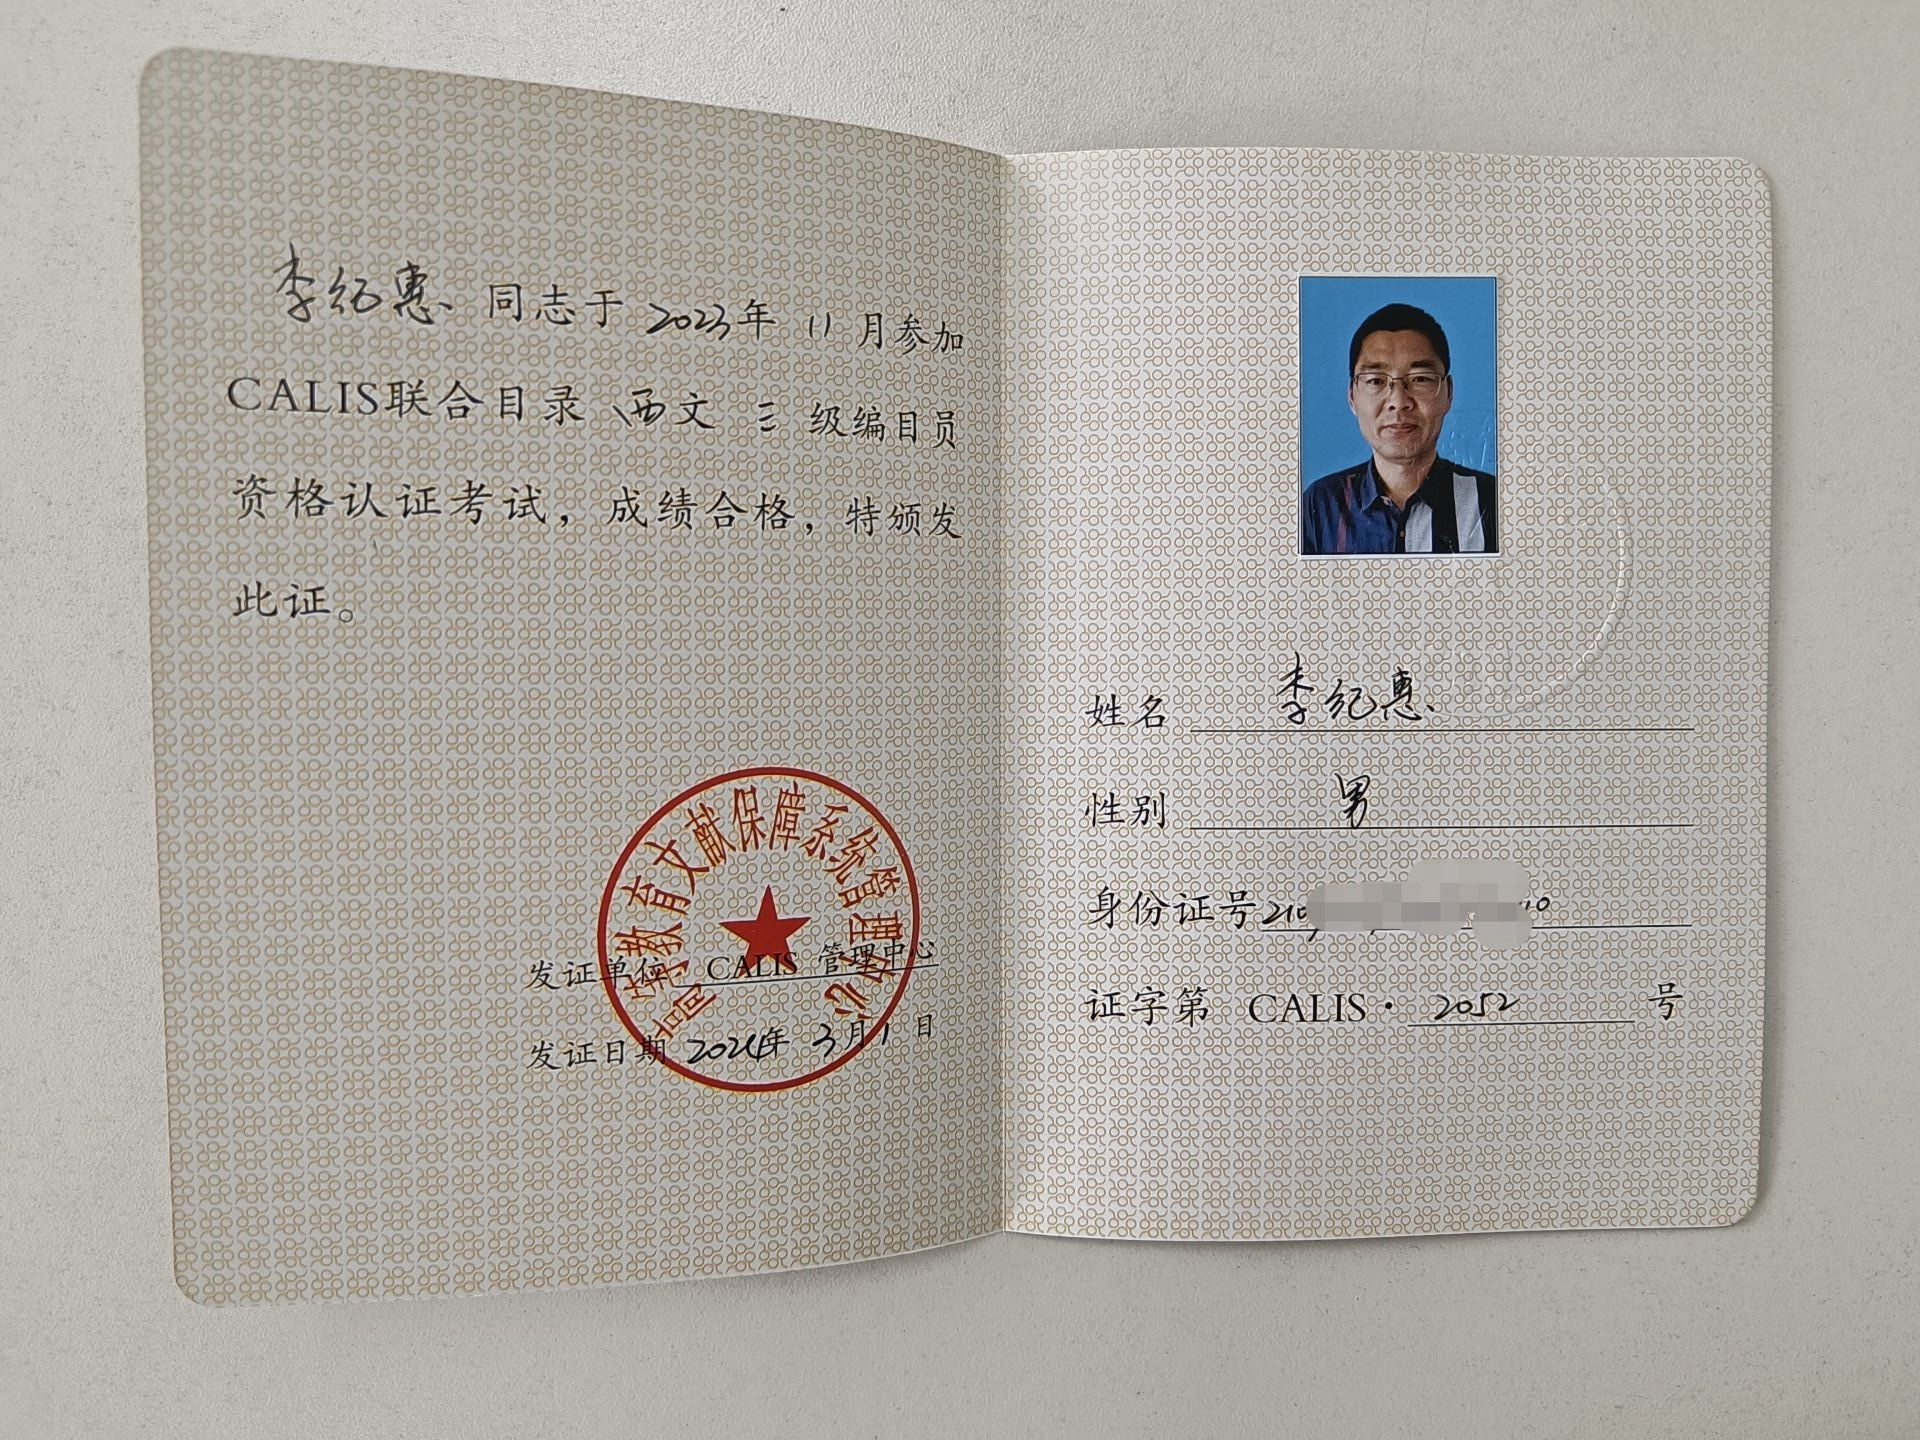 李纪惠 同志于 2023年 11 月参加
CALIS联合目录 西文 三 级编目员
资格认证考试，成绩合格，特颁发
此证。
高等教育文献保障系统管理中心
发证单位 CALIS 管理中心
发证日期 2024年 3月1日
姓名 李纪惠
性别 男
身份证号
证字第 CALIS· 2052 号